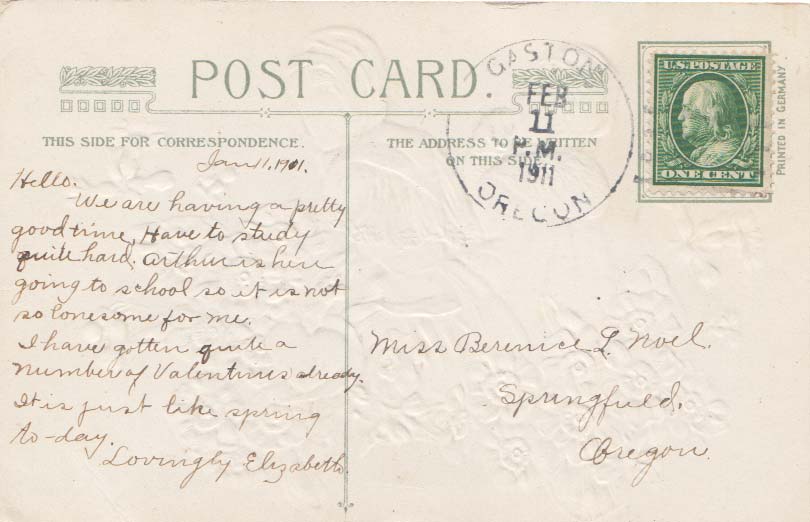 POST CARD.
THIS SIDE FOR CORRESPONDENCE.
THE ADDRESS TO BE WRITTEN
ON THIS SIDE.
GASTON
FEB
11
P.M.
1911
OREGON
U.S. POSTAGE
ONE CENT
PRINTED IN GERMANY.
Jan 11, 1911.
Hello.
We are having a pretty
good time. Have to study
quite hard. Arthur is here
going to school so it is not
so lonesome for me.
I have gotten quite a
number of Valentines already.
It is just like spring
to-day.
Lovingly Elizabeth.
Miss Berenice L. Noel.
Springfield.
Oregon.